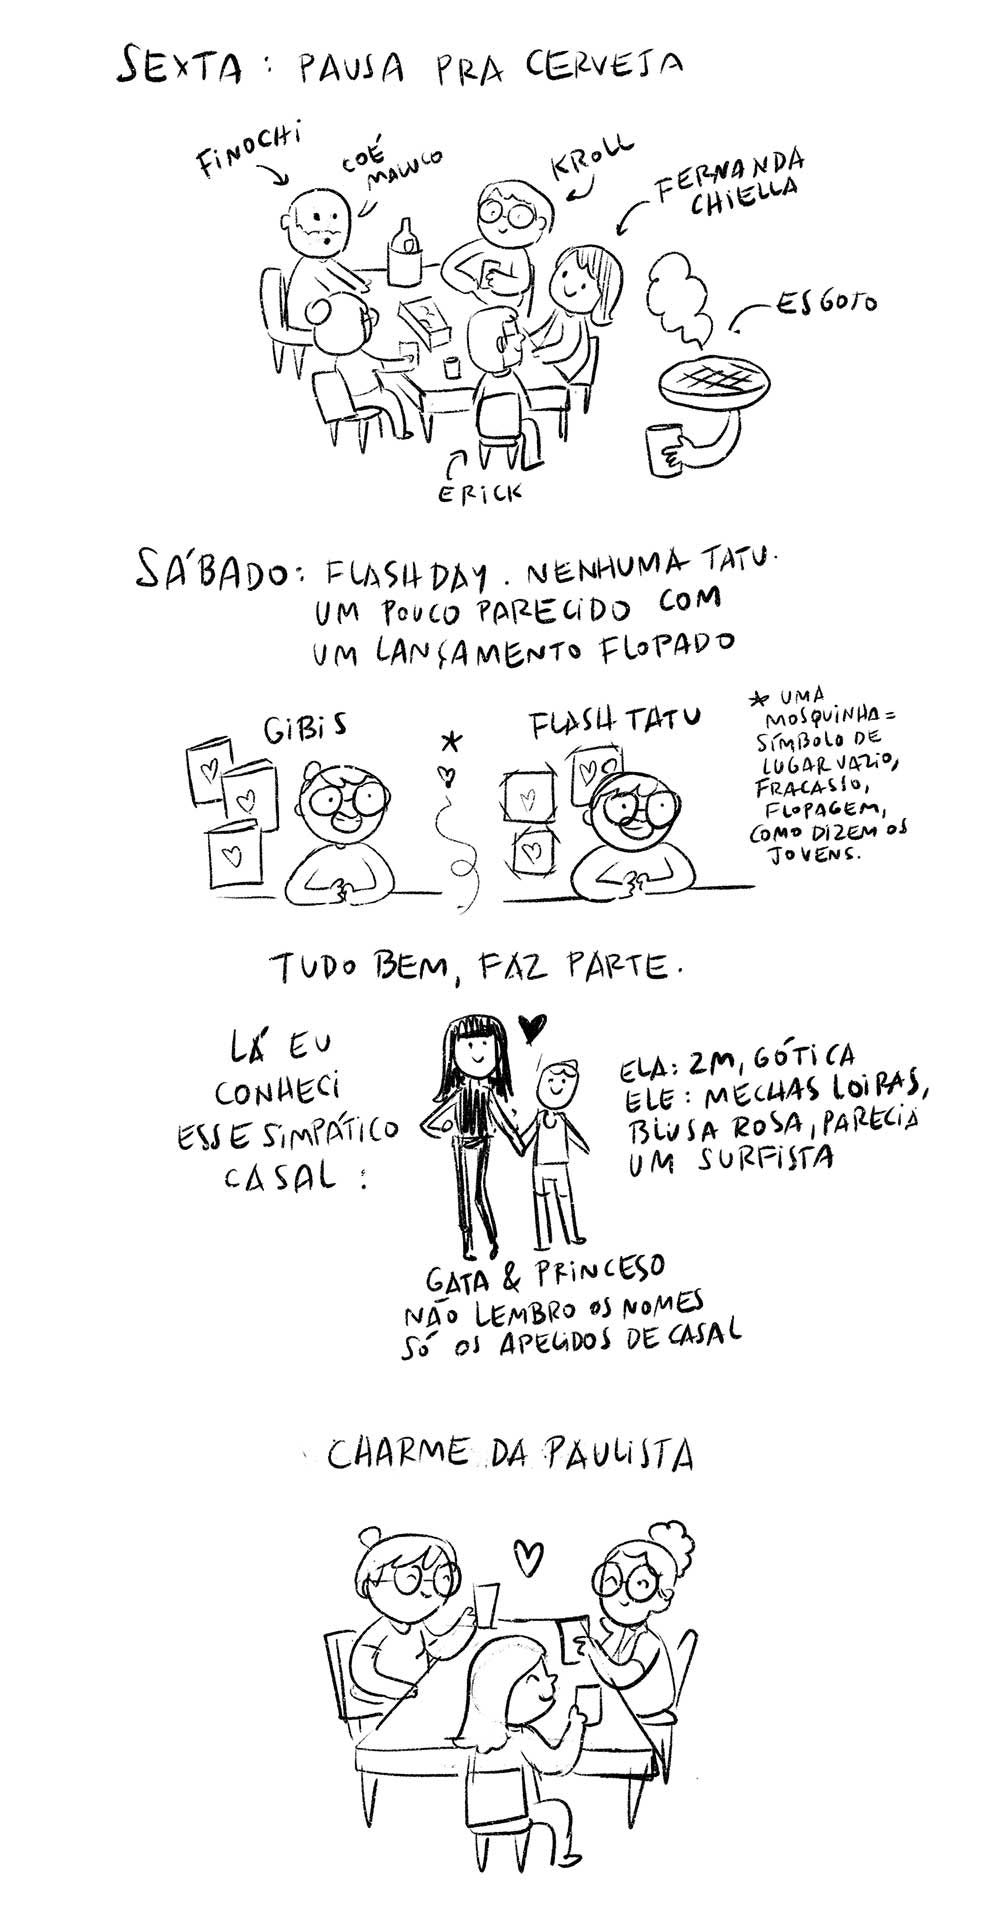 SEXTA: PAUSA PRA CERVEJA
FINOCHI
COÉ
MALUCO
KROLL
FERNANDA
CHIELLA
ESGOTO
ERICK
SÁBADO: FLASH DAY. NENHUMA TATU.
UM POUCO PARECIDO COM
UM LANÇAMENTO FLOPADO
GIBIS
*
FLASH TATU
* UMA
MOSQUINHA =
SÍMBOLO DE
LUGAR VAZIO,
FRACASSO,
FLOPAGEM,
COMO DIZEM OS
JOVENS.
TUDO BEM, FAZ PARTE.
LÁ EU
CONHECI
ESSE SIMPÁTICO
CASAL:
ELA: 2M, GÓTICA
ELE: MECHAS LOIRAS,
BLUSA ROSA, PARECIA
UM SURFISTA
GATA & PRINCESO
NÃO LEMBRO OS NOMES
SÓ OS APELIDOS DE CASAL
CHARME DA PAULISTA